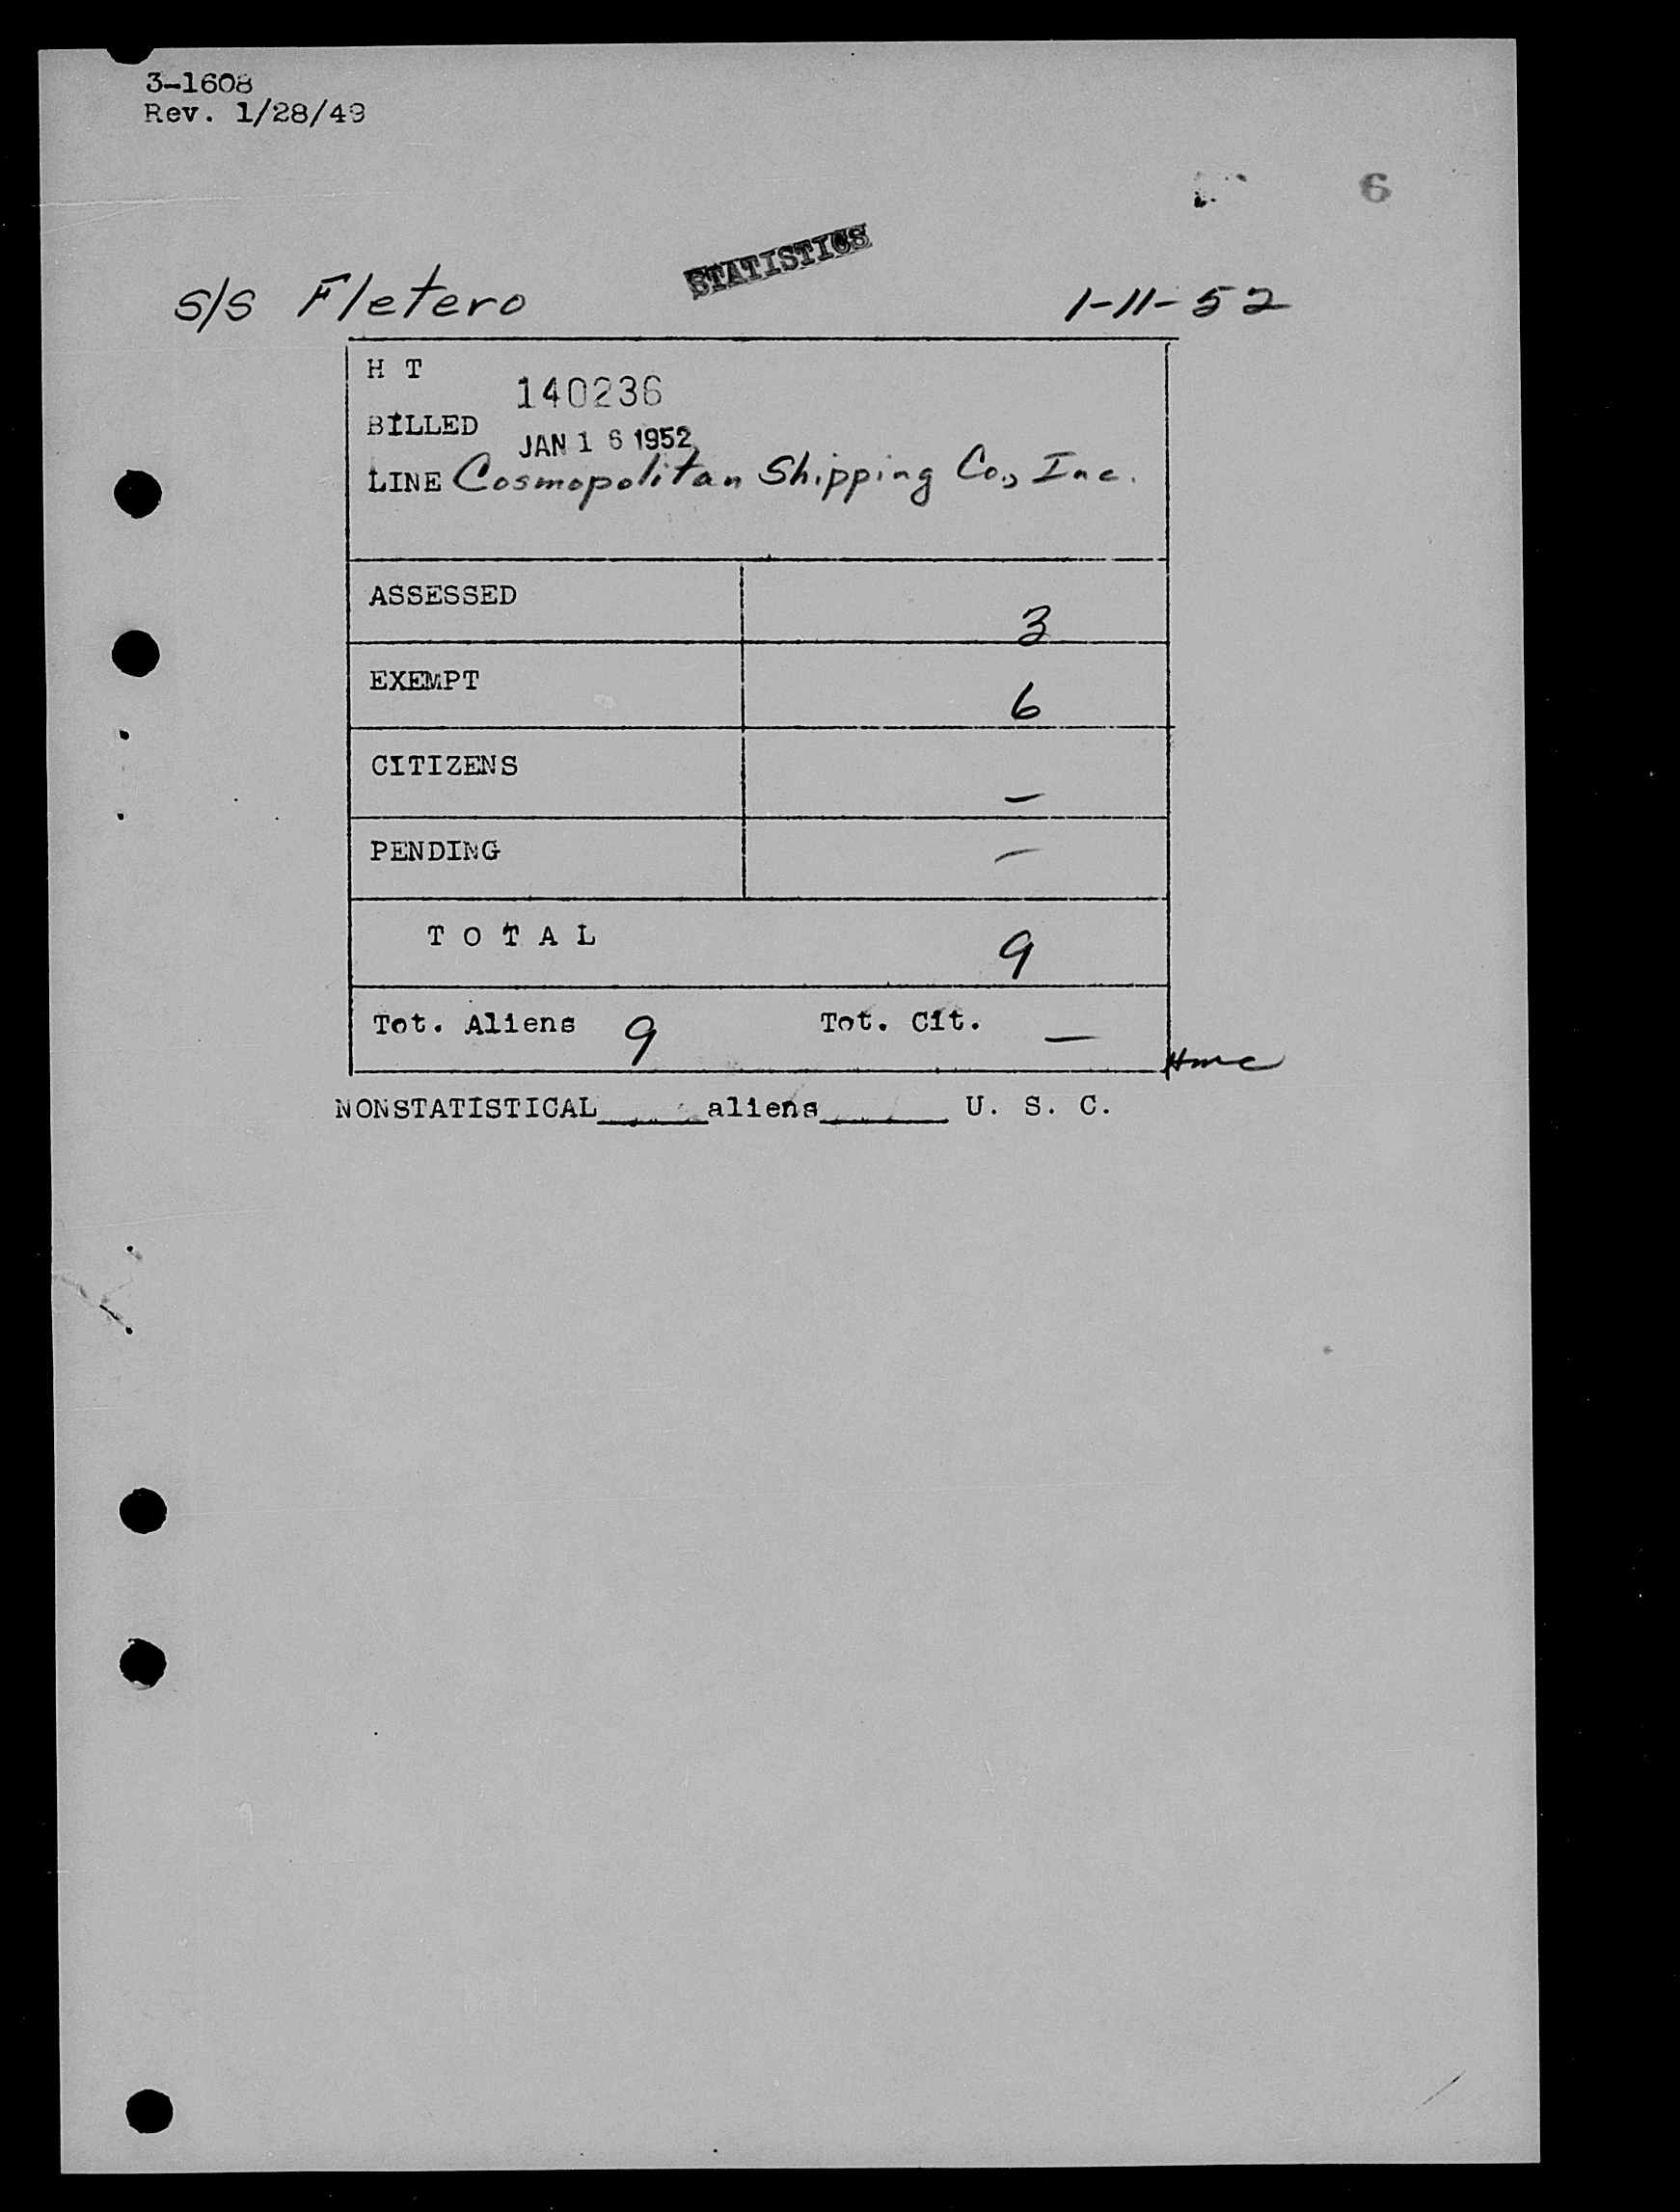 3-1608
Rev. 1/28/49
6
STATISTICS
S/S Fletero 1-11-52
H T
140236
BILLED
JAN 16 1952
LINE Cosmopolitan Shipping Co., Inc.
ASSESSED 3
EXEMPT 6
CITIZENS –
PENDING –
T O T A L 9
Tot. Aliens 9 Tot. Cit. –
Hmc
NONSTATISTICAL_____aliens______ U. S. C.